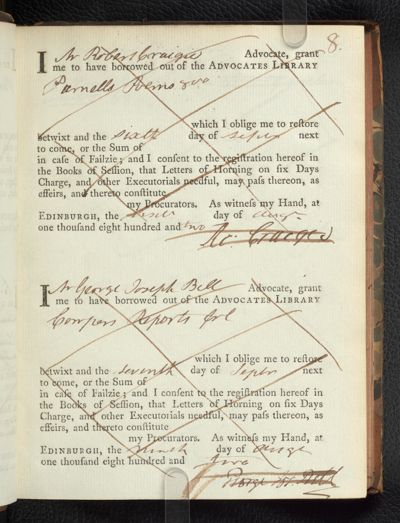 8.
I Mr Robert Craigie Advocate, grant
me to have borrowed out of the ADVOCATES LIBRARY
Parnells Poems 8vo
which I oblige me to reſtore
betwixt and the sixth day of Septr next
to come, or the Sum of
in caſe of Failzie; and I conſent to the regiſtration hereof in
the Books of Seſſion, that Letters of Horning on ſix Days
Charge, and other Executorials needful, may paſs thereon, as
effeirs, and thereto conſtitute
my Procurators. As witneſs my Hand, at
EDINBURGH, the day of Augt
one thouſand eight hundred and two
Ro: Craigie
I Mr George Joseph Bell Advocate, grant
me to have borrowed out of the ADVOCATES LIBRARY
Cowpers Reports
which I oblige me to reſtore
betwixt and the seventh day of Septr next
to come, or the Sum of
in caſe of Failzie; and I conſent to the regiſtration hereof in
the Books of Seſſion, that Letters of Horning on ſix Days
Charge, and other Executorials needful, may paſs thereon, as
effeirs, and thereto conſtitute
my Procurators. As witneſs my Hand, at
EDINBURGH, the day of
one thouſand eight hundred and
George Jos. Bell